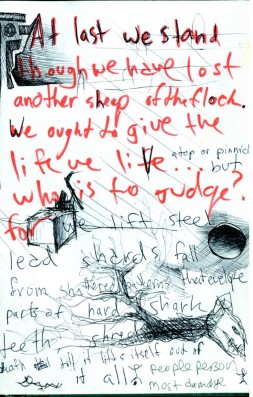 At last we stand
though we have lost
another sheep of the flock.
We ought to give the
life we live... atop or
but
who is to judge?
for we lift steel
lead shards fall
from shattered patterns that
parts of hard shark
teeth
still it lifts itself out of
it all! people person
most